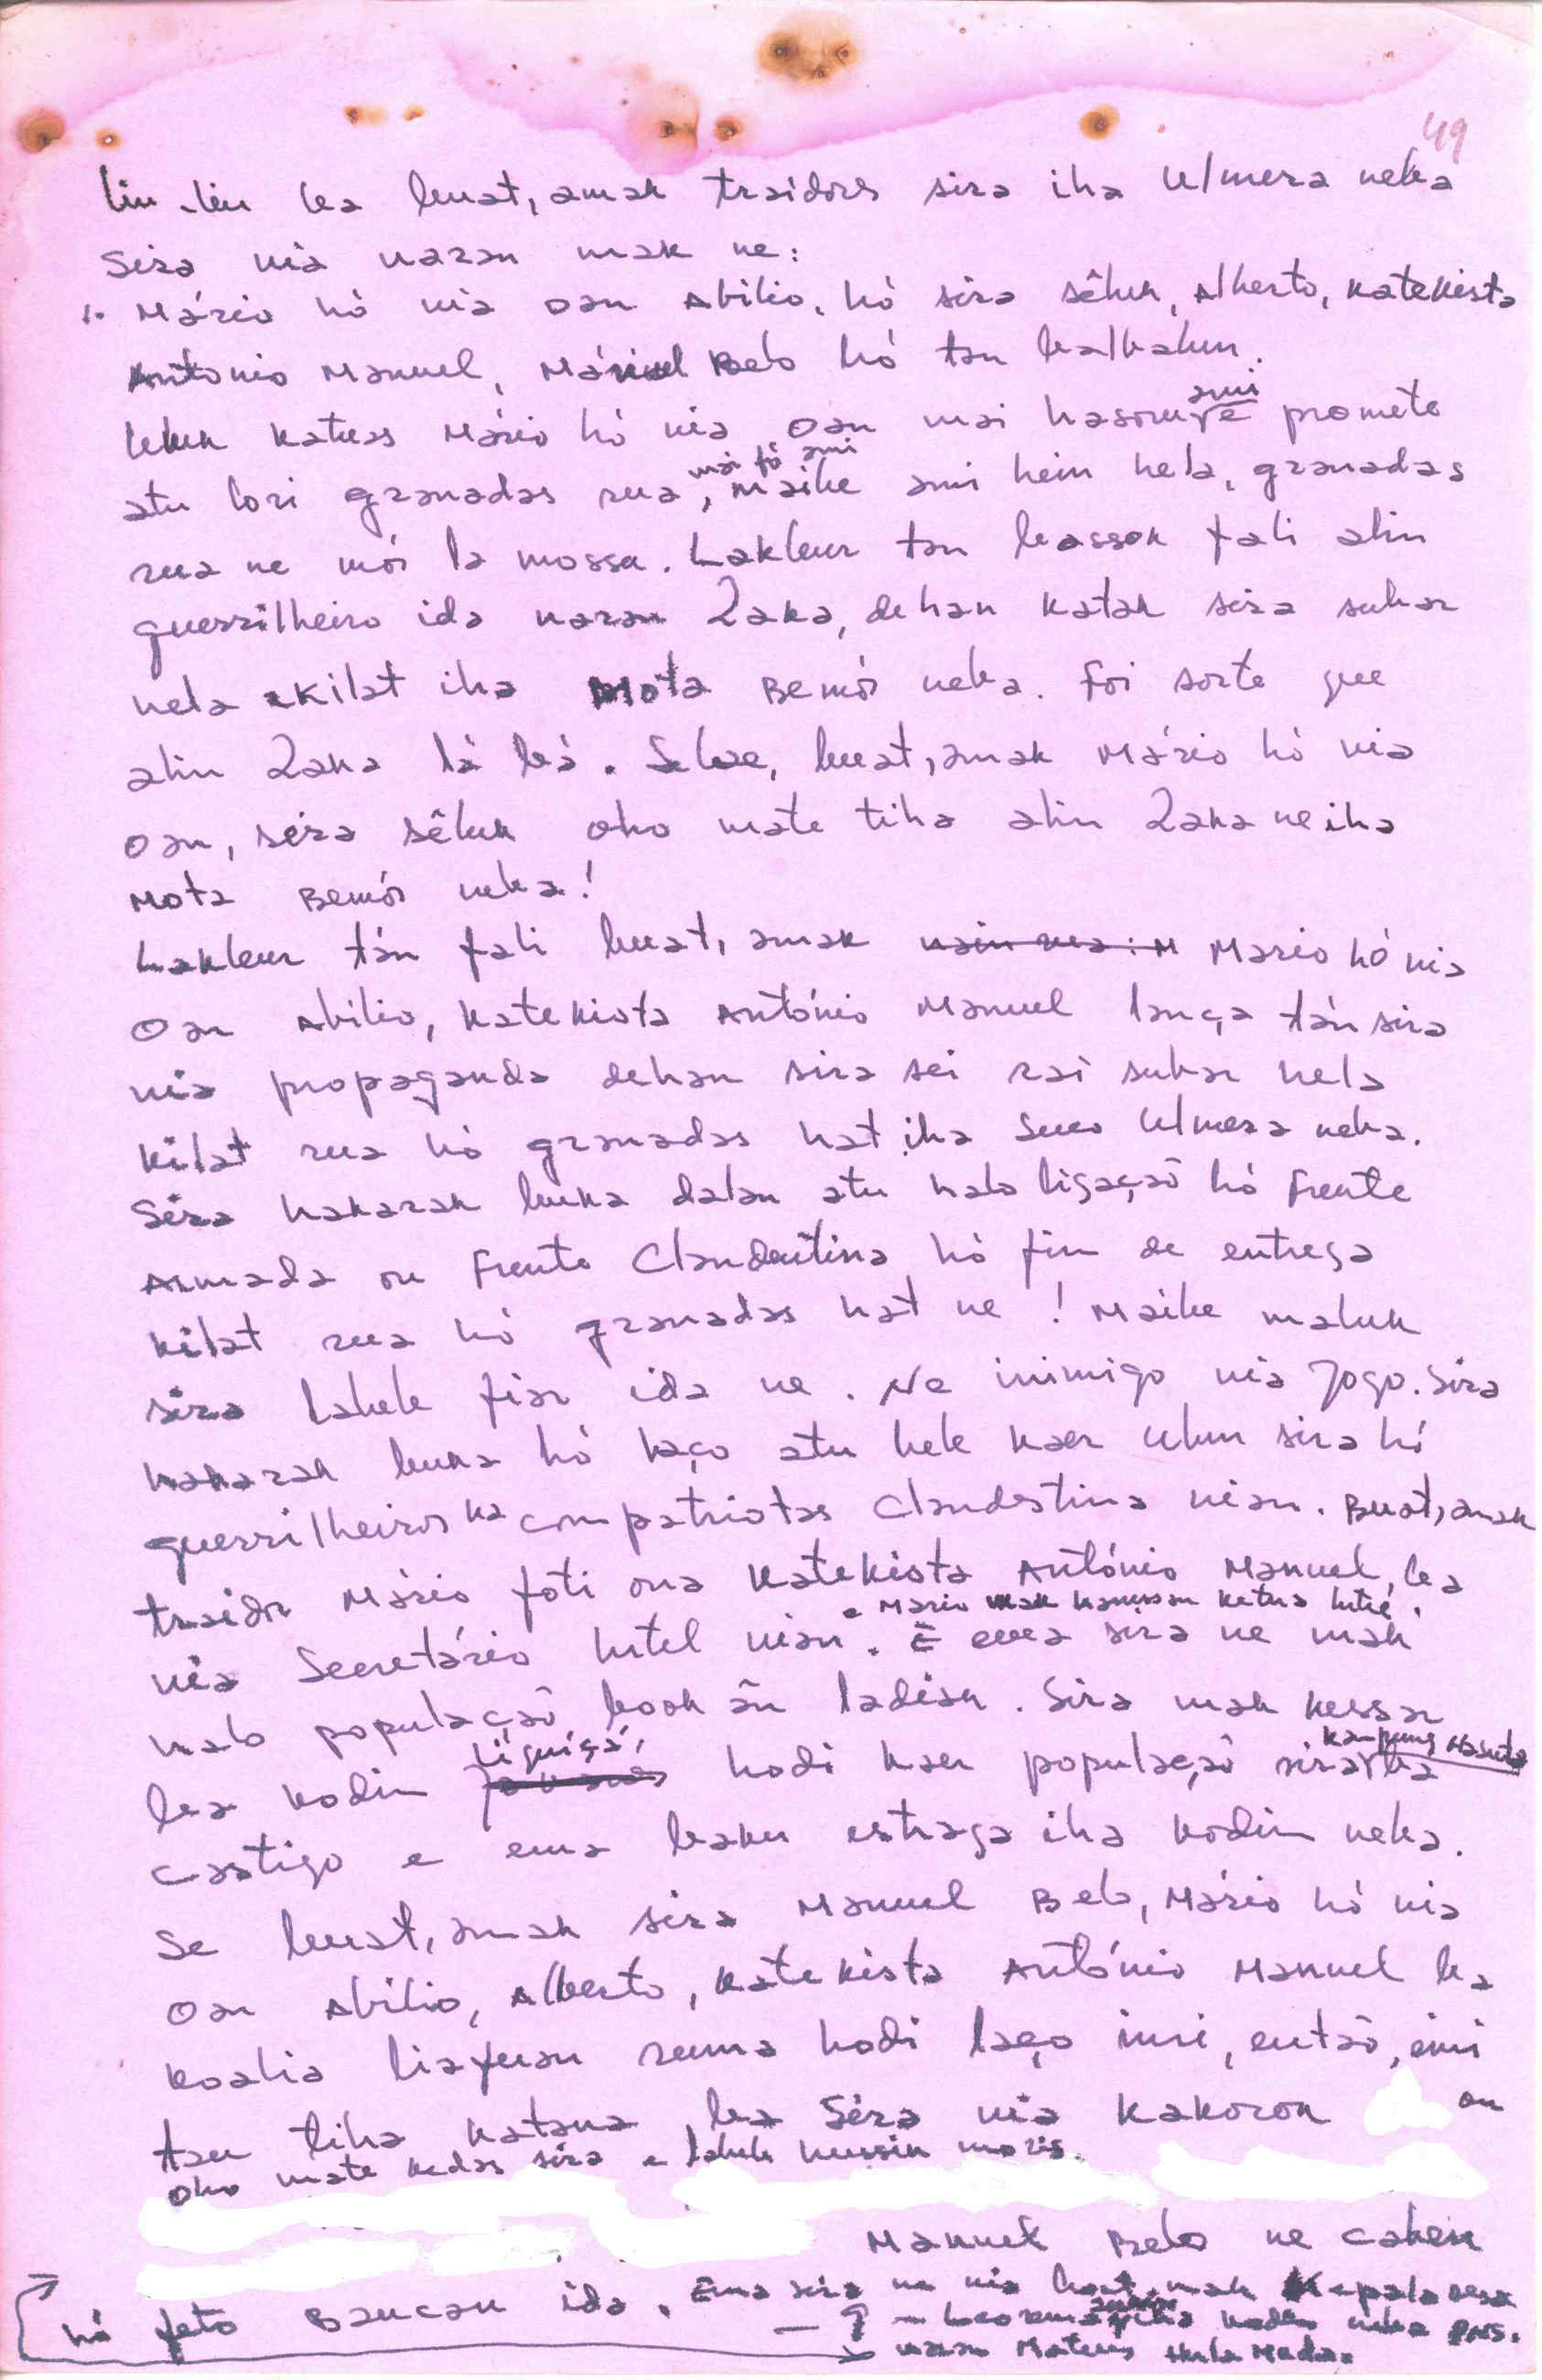 49
liu-liu ba buat, amak traidores sira iha Ulmera neba
Sira nia naran mak ne:
1. Mário hó nia oan Abilio, hó sira sêluk, Alberto, Katekista
António Manuel, Manuel Belo hó tan balbalun.
Uluk Katuas Mário hó nia oan mai hasoru ami e promete
atu lori granadas rua mai fó ami, maibe ami hein hela, granadas
rua ne mós la mossu. Lakleur tan bassok fali alin
guerrilheiro ida naran Zaka, dehan katak sira subar
hela kilat iha Mota Bemós neba. Foi sorte que
alin Zaka lá bá. Selae, buat, amak Mário hó nia
oan, sira sêluk oho mate tiha alin Zaka ne iha
Mota Bemós neba!
Lakleur tán fali buat, amak Mario hó nia
Oan Abilio, Katekista António Manuel lança tán sira
nia propaganda dehan sira sei rai subar hela
kilat rua hó granadas hat iha Suco Ulmera neba.
Sira hakarak buka dalan atu halo ligação hó Frente
Armada ou Frente Clandestina hó fim de entrega
kilat rua hó granadas hat ne! Maibe maluk
sira labele fiar ida ne. Ne inimigo nia jogo. Sira
hakarak buka hó laço atu bele kaer Ulun sira hó
guerrilheiros ka compatriotas Clandestina nian. Buat, amak
traidor Mário foti ona Katekista António Manuel, ba
nia Secretário Intel nian. e Mario mak hanessan Ketua Intel.
É ema sira ne mak
halo população book án ladiak. Sira mak kessar
ba Kodim Liquiçá, hodi kaer população sira kampung Hasuta ba
castigo e ema baku estraga iha Kodim neba.
Se buat, amak sira Manuel Belo, Mário hó nia
Oan Abilio, Alberto, Katekista António Manuel ba
koalia liafuan ruma hodi laço imi, então, imi
tau tiha katana ba Sira nia kakorok ou
oho mate kedas sira e labele hussik moris.
Manuel Belo ne caben
hó feto Baucau ida. Ema sira ne nia boot mak Kepala desa
naran Mateus